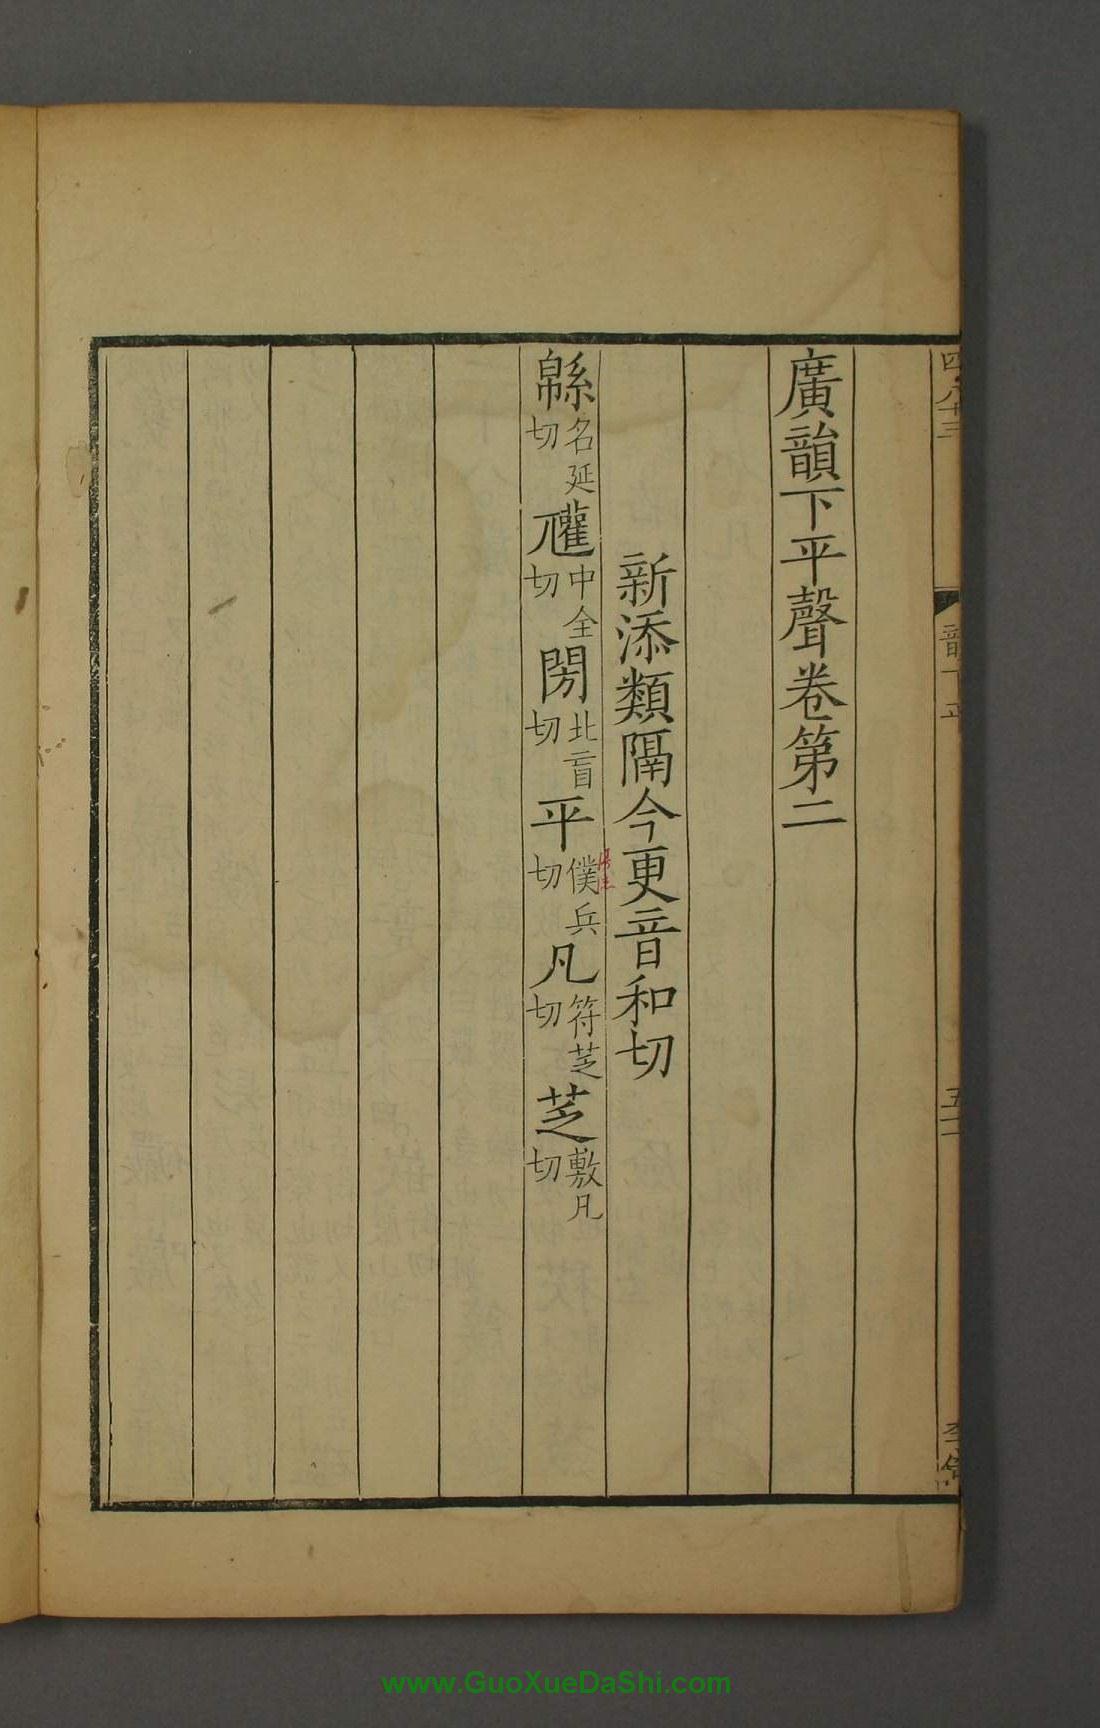 廣韻下平聲卷第二
新添類隔今更音和切
緜名延切𡰠中全切閍北盲切平僕兵切凡符芝切芝敷凡切
韻下平
五十二
www.GuoXueDaShi.com